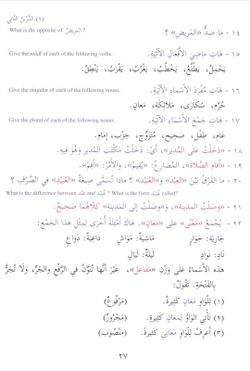 (٢) الدَّرْسُ الثَّانِي
١٤ - مَا ضِدُّ «الْمَرِيضِ» ؟
What is the opposite of «الْمَرِيضُ»?
١٥ - هَاتِ مَاضِيَ الأَفْعَالِ الآتِيَةِ.
Give the mādī of each of the following verbs.
يَحْمِلُ، يَطْلُعُ، يَخْطُبُ، يَغْرُبُ، يَقْرُبُ، يَنْطِقُ.
١٦ - هَاتِ مُفْرَدَ الأَسْمَاءِ الآتِيَةِ.
Give the singular of each of the following nouns.
حُرُمٌ، سُكَارَى، مَلَائِكَةٌ، مَعَانٍ.
١٧ - هَاتِ جَمْعَ الأَسْمَاءِ الآتِيَةِ.
Give the plural of each of the following nouns.
عَامٌ، طِفْلٌ، صَحِيحٌ، مُتَزَوِّجٌ، حِزْبٌ، إِمَامٌ.
١٨ - «دَخَلْتُ عَلَى الْمُدِيرِ»، أَيْ: دَخَلْتُ مَكْتَبَ الْمُدِيرِ وَهُوَ فِيهِ.
١٩ - «أَقَامَ الصَّلَاةَ». الْمُضَارِعُ: «يُقِيمُ»، وَالأَمْرُ: «أَقِمْ».
٢٠ - مَا الْفَرْقُ بَيْنَ «الْعَبْدِ» وَ«الْعُبَيْدِ» ؟ مَاذَا تُسَمَّى صِيغَةُ «الْعُبَيْدِ» فِي الصَّرْفِ ؟
What is the difference between عَبْد and عُبَيْد ? What is the form عُبَيْد called?
٢١ - «وَصَلْتُ الْمَدِينَةَ»، وَ«وَصَلْتُ إِلَى الْمَدِينَةِ» كِلَاهُمَا صَحِيحٌ.
٢٢ - يُجْمَعُ «مَعْنًى» عَلَى «مَعَانٍ». هَاكَ أَمْثِلَةً أُخْرَى لِمِثْلِ هَذَا الْجَمْعِ:
جَارِيَةٌ: جَوَارٍ مَاشِيَةٌ: مَوَاشٍ دَاعِيَةٌ: دَوَاعٍ
نَادٍ: نَوَادٍ لَيْلَةٌ: لَيَالٍ
هَذِهِ الأَسْمَاءُ عَلَى وَزْنِ «مَفَاعِلَ»، غَيْرَ أَنَّهَا تُنَوَّنُ فِي الرَّفْعِ وَالْجَرِّ، وَلَا تُجَرُّ
بِالْفَتْحَةِ. تَقُولُ:
(١) لِلْوَاوِ مَعَانٍ كَثِيرَةٌ. (مَرْفُوعٌ)
(٢) تَأْتِي الْوَاوُ لِمَعَانٍ كَثِيرَةٍ. (مَجْرُورٌ)
(٣) أَعْرِفُ لِلْوَاوِ مَعَانِيَ كَثِيرَةً. (مَنْصُوبٌ)
٢٧